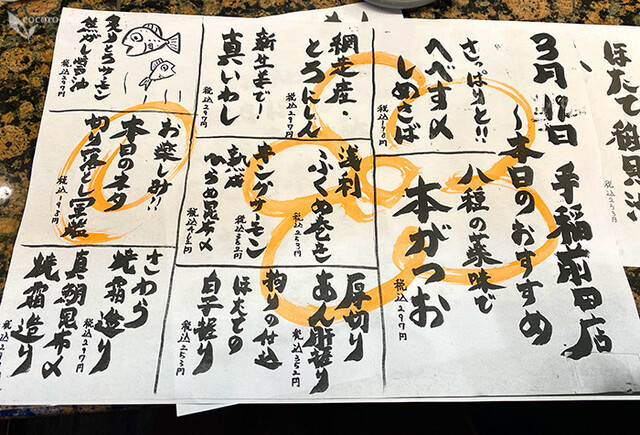 ほたて
税込253円
3月18日 手稲前田店
~本日のおすすめ
八種の薬味で
本がつお
税込297円
さっぱりと!!
へべす〆
しめさば
網走産・
とろにしん
税込297円
新生姜で!
真いわし
税込297円
炙りとろサーモン
焦がし醤油
税込297円
浅利
ふくめ巻き
税込253円
キングサーモン
税込352円
熟成
ひらめ昆布〆
税込462円
お楽しみ!!
本日のネタ
切り落とし軍艦
税込198円
厚切り
あん肝握り
税込352円
拘りの仕込
ほたての
白子握り
税込253円
さわら
焼霜造り
税込297円
真鯛昆布〆
焼霜造り
cocoro